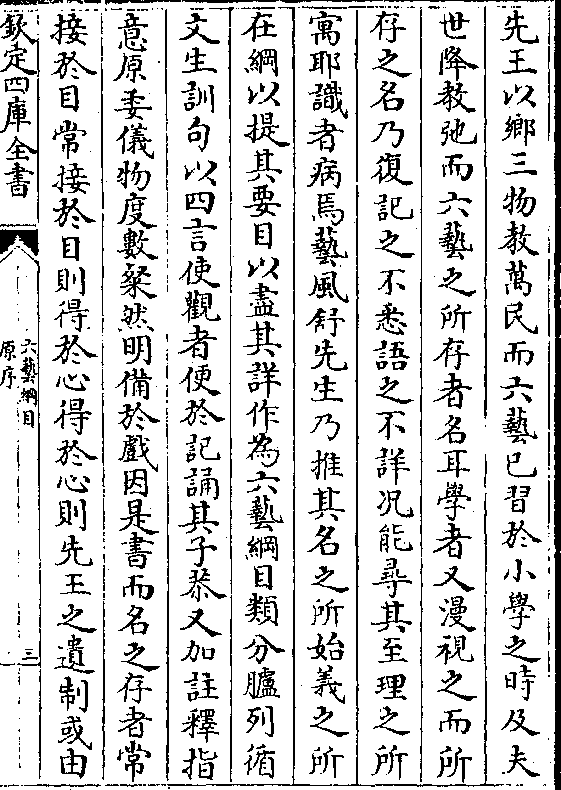 先王以鄉三物教萬民而六藝已習於小學之時及夫
世降教弛而六藝之所存者名耳學者又漫視之而所
存之名乃復記之不悉語之不詳况能尋其至理之所
寓耶識者病焉藝風舒先生乃推其名之所始義之所
在綱以提其要目以盡其詳作為六藝綱目類分臚列循
文生訓句以四言使觀者便於記誦其子恭又加註釋指
意原委儀物度數粲然明備於戲因是書而名之存者常
接於目常接於目則得於心得於心則先王之遺制或由
欽定四庫全書
六藝綱目
原序
三